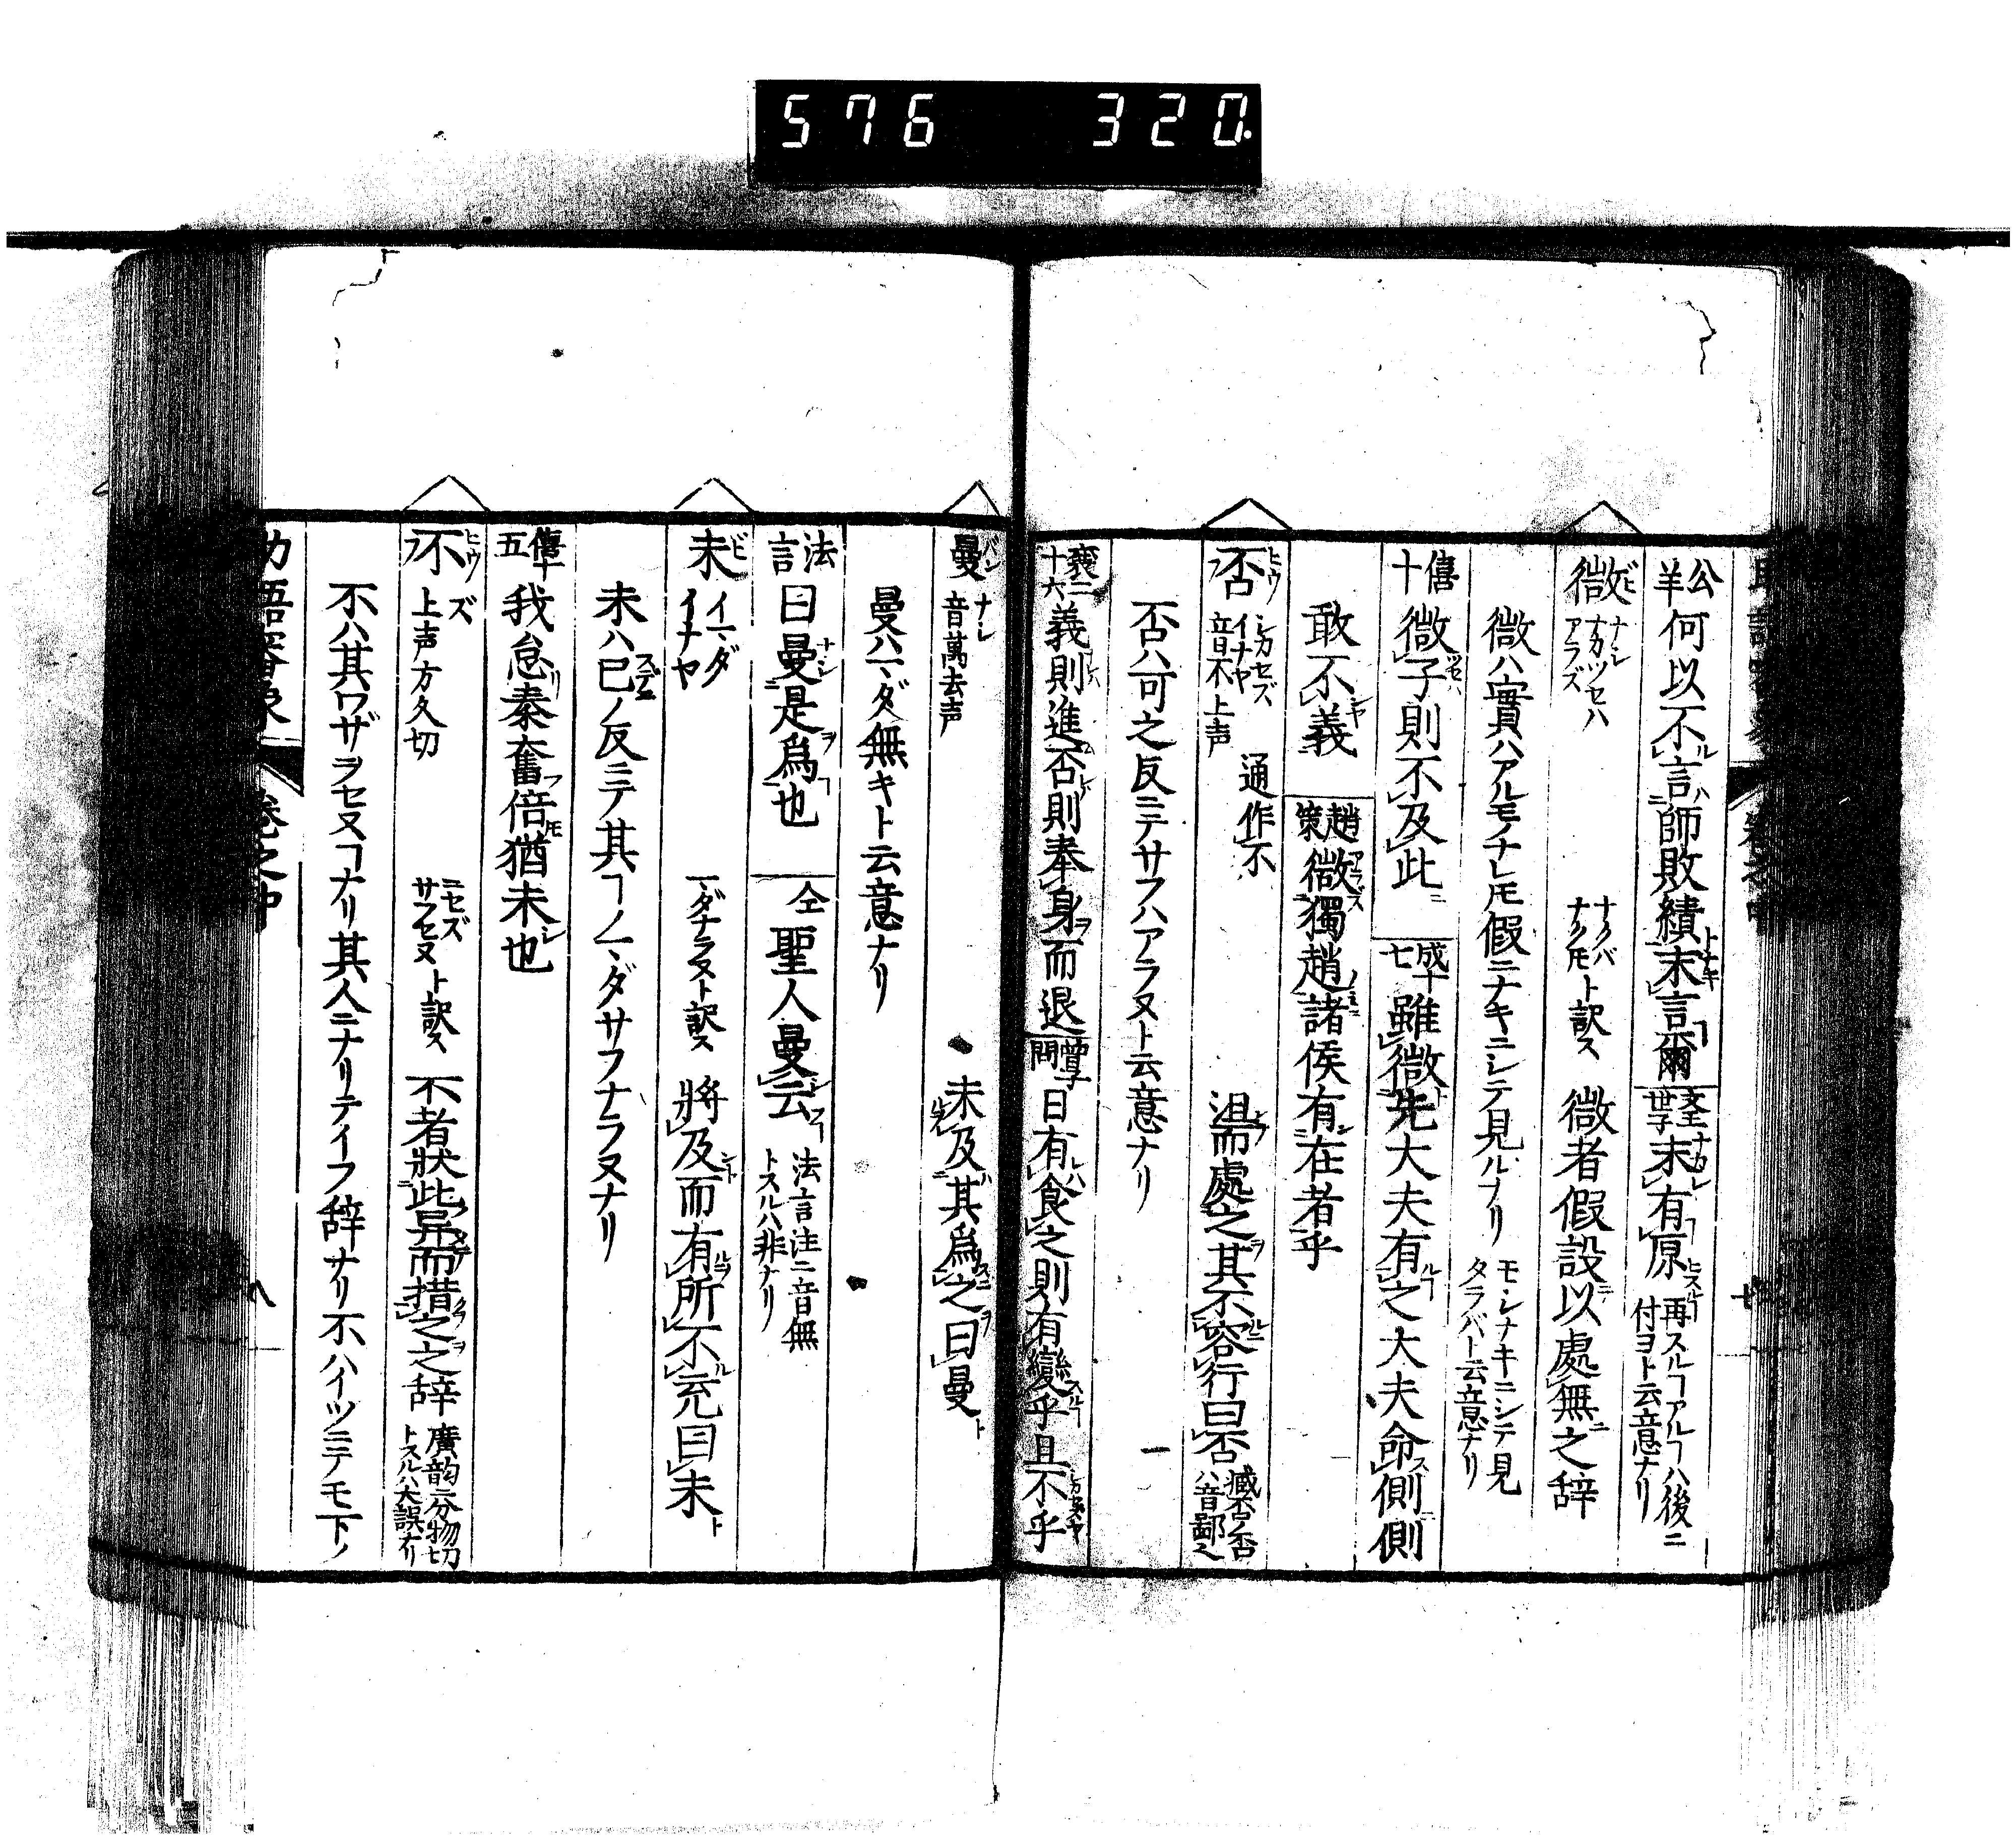 576 320
公羊 何以不言師敗績末言爾 文王世子 末有原 再スルヿアルヿハ後ニ付ヨト云意ナリ
微 ビ ナシ ナカツセハ アラズ ナクバ ナクモト訳ス 微者假設以處無之辞
微ハ實ハアルモノナレ𪜈假ニナキニシテ見ルナリ モシナキニシテ見タラバト云意ナリ
僖十 微子則不及此 成十七 雖微先大夫有之大夫命側側
敢不義 趙策 微獨趙諸侯有在者乎
否 ヒウ シカセズ イナヤ 音不上声 通作不 沮而處之其不容行曰否 臧否ノ否ハ音鄙
否ハ可之反ニテサフハアラヌト云意ナリ
襄二十六 義則進否則奉身而退 曾子問 日有食之則有變乎且不乎
曼 バン ナシ 音萬去声 未及其爲之曰曼
曼ハマダ無キト云意ナリ
法言 曰曼是爲也 仝 聖人曼云 法言注ニ音無トスルハ非ナリ
未 ビ イマダ イナヤ マダナラヌト訳ス 將及而有所不充曰未
未ハ已ノ反ニテ其ヿノマダサフナラヌナリ
僖十五 我怠秦奮倍猶未也
不 ヒウ ズ 上声方久切 ニセズ サフセヌト訳ス 不者狀此異而措之之辞 廣韵ニ分物切トスルハ大誤ナリ
不ハ其ワザヲセヌヿナリ其人ニナリテイフ辞ナリ不ハイツニテモ下ノ
卷之中